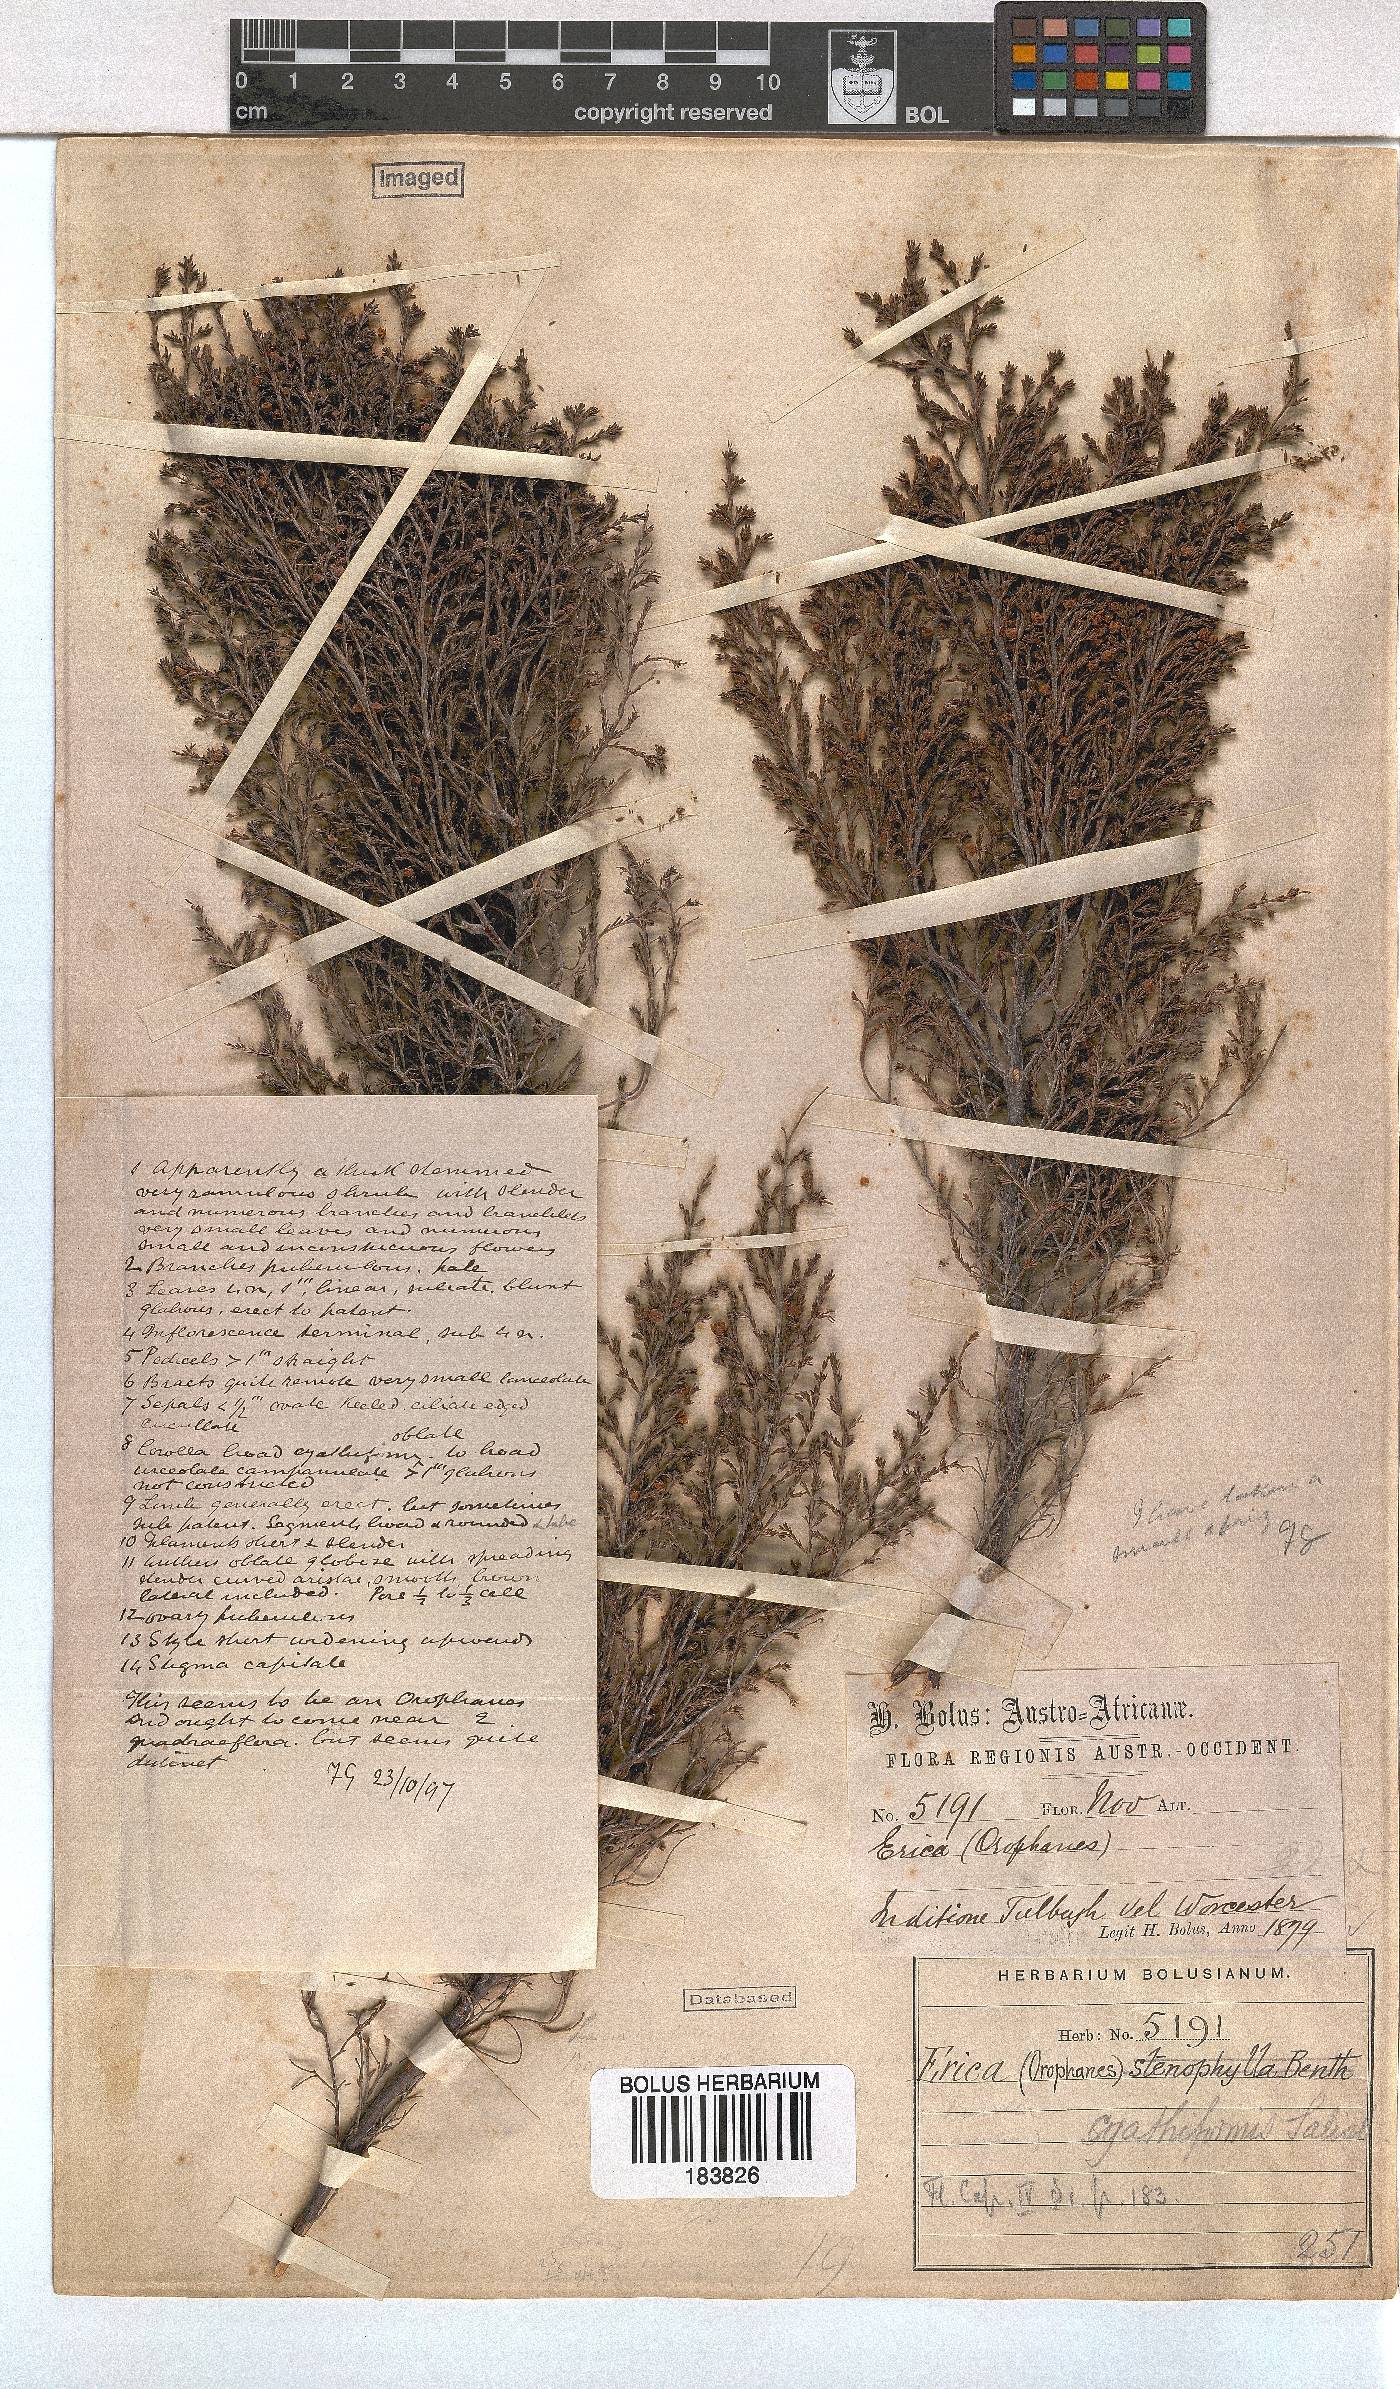 0 1 2 3 4 5 6 7 8 9 10
cm
copyright reserved
BOL
Imaged
1 Apparently a thick stemmed
very ramulous shrub with slender
and numerous branches and branchlets
very small leaves and numerous
small and inconspicuous flowers
2 Branches puberulous. pale
3 Leaves 4n, 1''', linear, sulcate. blunt
glabrous, erect to patent.
4 Inflorescence terminal, sub 4n.
5 Pedicels > 1''' straight
6 Bracts quite remote very small lanceolate
7 Sepals < 1/2''' ovate keeled ciliate edged
cucullate
oblate
8 Corolla broad cyathiform to broad
urceolate campanulate > 1''' glabrous
not constricted
9 Limb generally erect. but sometimes
sub patent. Segments broad & rounded
10 Filaments short & slender
11 Anthers oblate globose with spreading
slender curved aristae, smooth brown
lateral included. Pore 1/2 to 1/3 cell
12 ovary puberulous
13 Style short widening upwards
14 Stigma capitate
This seems to be an Orophanes
and ought to come near
quadraeflora. but seems quite
distinct
23/10/97
I have taken a
small sprig
H. Bolus: Austro-Africanæ.
FLORA REGIONIS AUSTR.-OCCIDENT.
No. 5191 Flor. Nov Alt.
Erica (Orophanes)
In ditione Tulbagh vel Worcester
Legit H. Bolus, Anno 1879
HERBARIUM BOLUSIANUM.
Herb: No. 5191
Erica (Orophanes) stenophylla Benth
cyathiformis Salisb
Fl. Cap. IV p. 183.
251
Databased
BOLUS HERBARIUM
183826
19